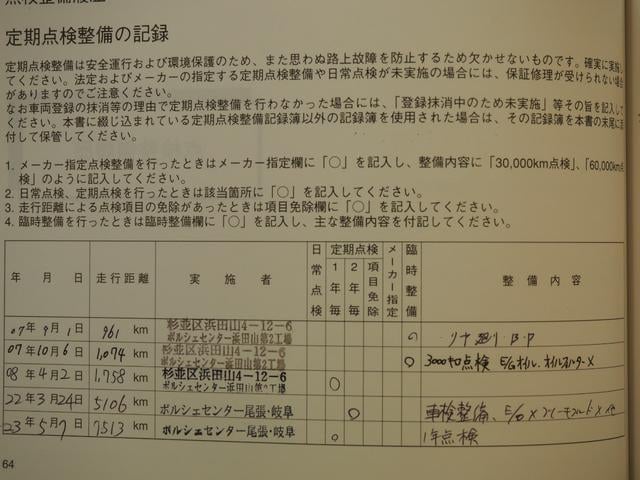 点検整備履歴
定期点検整備の記録
定期点検整備は安全運行および環境保護のため、また思わぬ路上故障を防止するため欠かせないものです。確実に実施し
てください。法定およびメーカーの指定する定期点検整備や日常点検が未実施の場合には、保証修理が受けられない場合
がありますのでご注意ください。
なお車両登録の抹消等の理由で定期点検整備を行わなかった場合には、「登録抹消中のため未実施」等その旨を記入して
ください。本書に綴じ込まれている定期点検整備記録簿以外の記録簿を使用された場合は、その記録簿を本書の末尾に添
付して保管してください。
1. メーカー指定点検整備を行ったときはメーカー指定欄に「○」を記入し、整備内容に「30,000km点検」、「60,000km点
検」のように記入してください。
2. 日常点検、定期点検を行ったときは該当箇所に「○」を記入してください。
3. 走行距離による点検項目の免除があったときは項目免除欄に「○」を記入してください。
4. 臨時整備を行ったときは臨時整備欄に「○」を記入し、主な整備内容を付記してください。
年 月 日 走行距離 実施者 日常点検 定期点検 1年毎 2年毎 項目免除 メーカー指定 臨時整備 整備内容
07年9月1日 961 km 杉並区浜田山4-12-6 ○
ポルシェセンター浜田山第2工場
07年10月6日 1,074 km 杉並区浜田山4-12-6 ○ 3000キロ点検 E/Gオイル、オイルフィルター×
ポルシェセンター浜田山第2工場
08年4月2日 1,758 km 杉並区浜田山4-12-6 ○
ポルシェセンター浜田山第2工場
22年3月24日 5106 km ポルシェセンター尾張・岐阜 ○ 車検整備、E/O×
23年5月7日 7513 km ポルシェセンター尾張・岐阜 ○ 1年点検
64